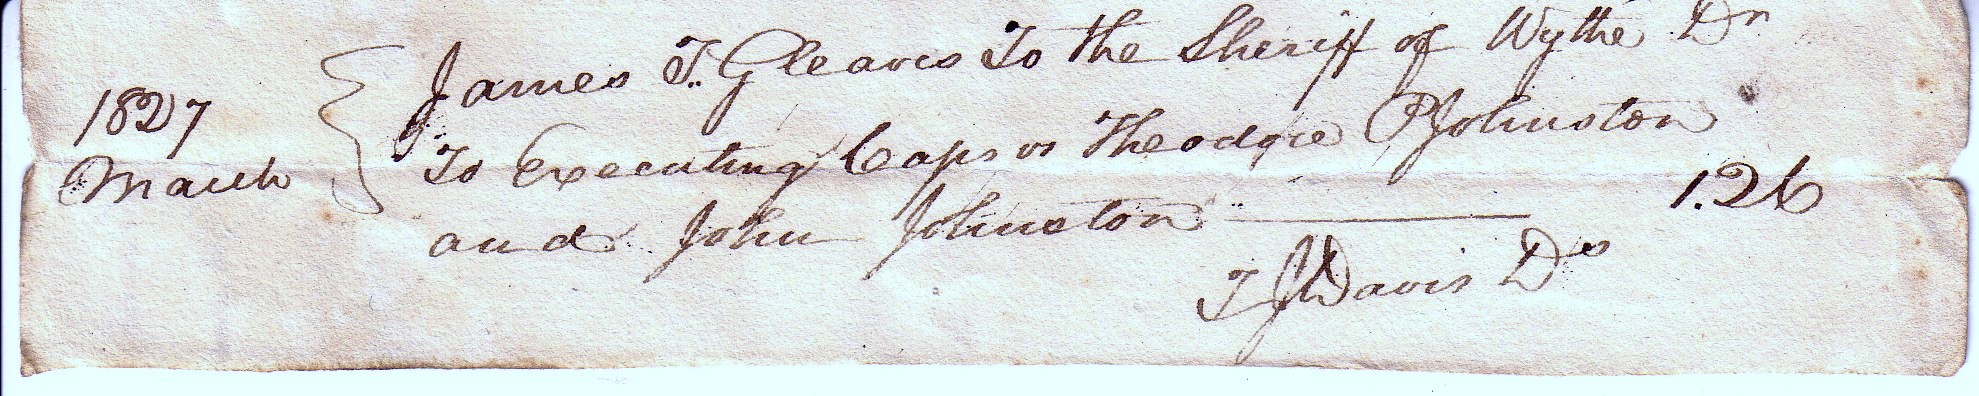 James T. Gleaves To the Sheriff of Wythe Dr
1827
March
To Executing Caps vs Theodore P Johnston
and John Johnston 1.26
T J Davis Ds